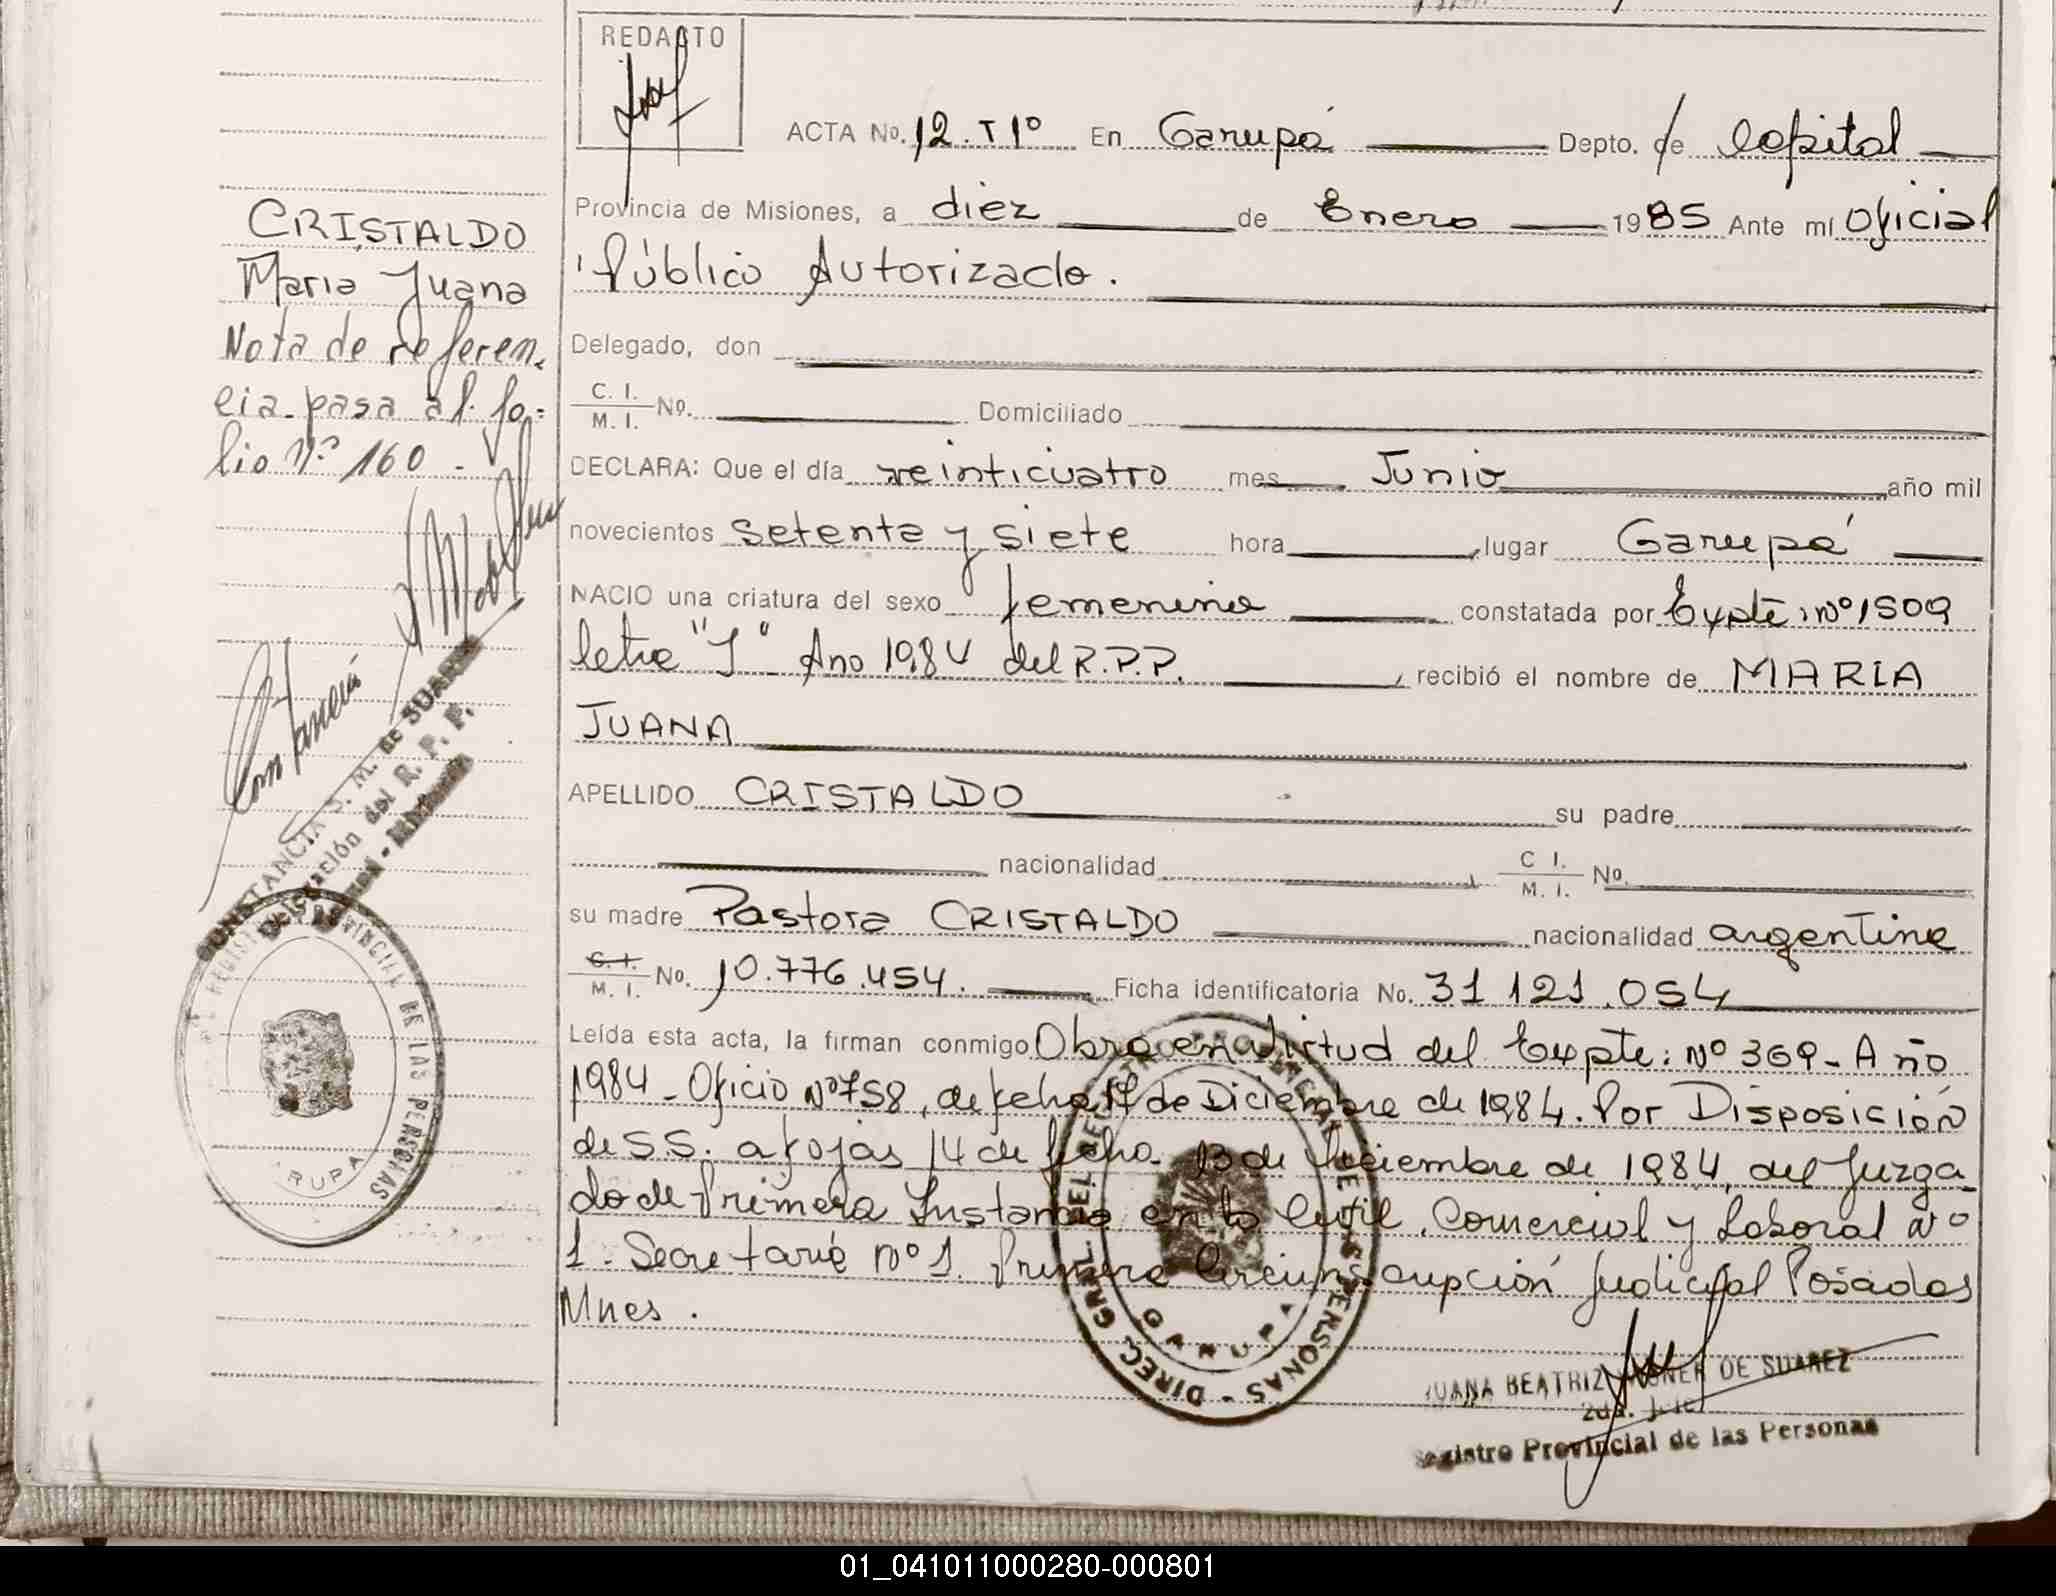 REDACTO
ACTA No. 12. T1º En Garupá Depto. de Capital
Provincia de Misiones, a diez de Enero 1985 Ante mí Oficial
Público Autorizado.
Delegado, don
C. I.
M. I. No. Domiciliado
DECLARA: Que el día veinticuatro mes Junio año mil
novecientos setenta y siete hora lugar Garupá
NACIO una criatura del sexo femenino constatada por Expte: Nº 1509
letra "J" Año 1984 del R.P.P. , recibió el nombre de MARIA
JUANA
APELLIDO CRISTALDO su padre
nacionalidad C I.
M. I. No.
su madre Pastora CRISTALDO nacionalidad argentina
C. I.
M. I. No. 10.776.454. Ficha identificatoria No. 31 121.054
Leída esta acta, la firman conmigo Obra en virtud del Expte: Nº 369 - Año
1984 - Oficio Nº 758, de fecha 17 de Diciembre de 1984. Por Disposición
de S.S. a fojas 14 de fecha 13 de Diciembre de 1984, del Juzga-
do de Primera Instancia en lo Civil, Comercial y Laboral Nº
1 - Secretaría Nº 1. Primera Circunscripción Judicial Posadas
Mnes.
CRISTALDO
Maria Juana
Nota de referen.
cia pasa al fo-
lio Nº 160 -
CONSTANCIA S. M. de SUAREZ
del R. P. P.
REGISTRO PROVINCIAL DE LAS PERSONAS
RUPA
DIREC. GRAL. DEL REGISTRO PROVINCIAL DE LAS PERSONAS
GARUPA
JUANA BEATRIZ DE SUAREZ
2da. Jefe
Registro Provincial de las Personas
01_041011000280-000801